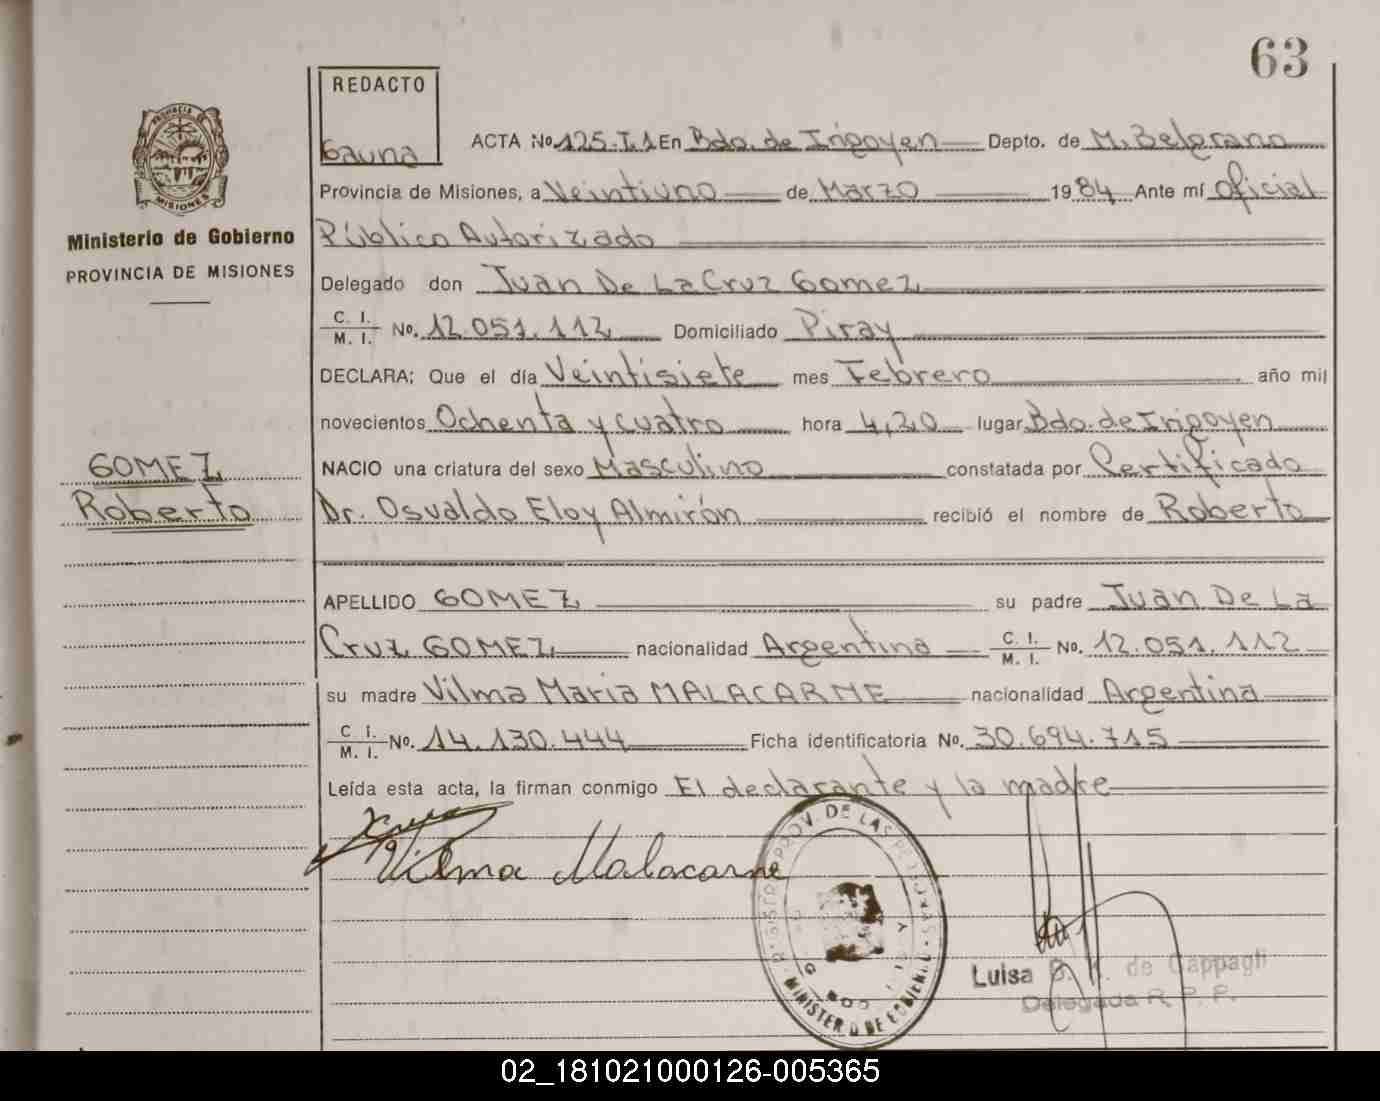 63
REDACTO
Gauna
ACTA No 125-T.1 En Bdo. de Irigoyen Depto. de M. Belgrano
Provincia de Misiones, a Veintiuno de Marzo 1984 Ante mí Oficial
Público Autorizado
PROVINCIA DE
MISIONES
Ministerio de Gobierno
PROVINCIA DE MISIONES
Delegado don Juan De La Cruz Gomez
C. I.
M. I. No. 12.051.112 Domiciliado Piray
DECLARA: Que el día Veintisiete mes Febrero año mil
novecientos Ochenta y cuatro hora 4,20 lugar Bdo. de Irigoyen
GOMEZ
Roberto
NACIO una criatura del sexo Masculino constatada por Certificado
Dr. Osvaldo Eloy Almirón recibió el nombre de Roberto
APELLIDO GOMEZ su padre Juan De La
Cruz GOMEZ nacionalidad Argentina C. I. M. I. No. 12.051.112
su madre Vilma Maria MALACARNE nacionalidad Argentina
C. I.
M. I. No. 14.130.444 Ficha identificatoria No. 30.694.715
Leída esta acta, la firman conmigo El declarante y la madre
Vilma Malacarne
PROV. DE LAS PERSONAS
MINISTERIO DE GOBIERNO
Luisa de Cappagli
Delegada R. P. P.
02_181021000126-005365